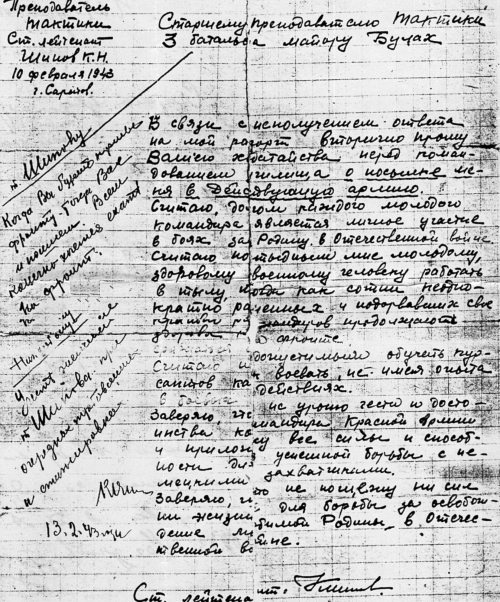 Преподаватель
тактики
Ст. лейтенант
Шипов К.Н.
10 февраля 1943
г. Саратов.
Старшему преподавателю тактики
3 батальона майору Булах
В связи с неполучением ответа
на мой рапорт вторично прошу
Вашего ходатайства перед коман-
дованием училища о посылке ме-
ня в действующую армию.
Считаю, долгом каждого молодого
командира является личное участие
в боях за Родину, в Отечественной войне
Считаю мне молодому,
здоровому военному человеку работать
в тылу, когда как сотни неодно-
кратно раненных и подорвавших свое
продолжают
фронте.
Считаю обучать кур-
сантов воевать, не имея опыта
в боевых действиях.
Заверяю, что не уроню чести и досто-
инства командира Красной Армии
и приложу все силы и способ-
ности для успешной борьбы с не-
мецкими захватчиками.
Заверяю, не пощажу ни сил
ни жизни для борьбы за освобож-
дение любимой Родины, в Отечес-
твенной войне.
Ст. лейтенант.
т. Шипову
Когда Вы будете нужны
фронту, тогда Вас
и пошлем. Всем
конечно хочется ехать
на фронт.
Нач. !!
Учесть желание
т. Шипова при
очередных отправлениях
13.2.43